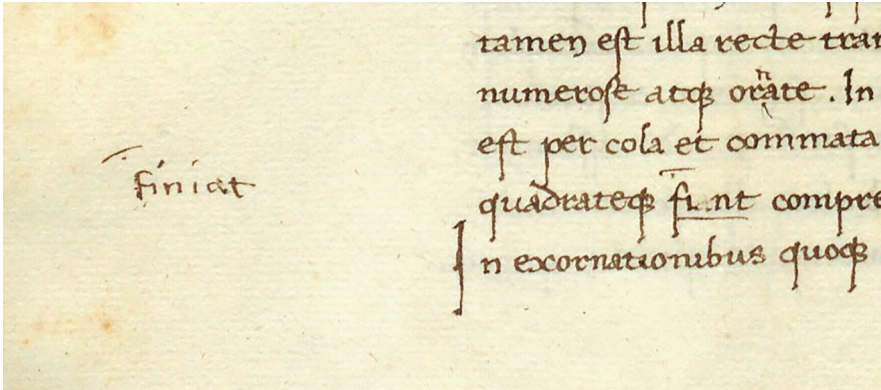 tamen est illa recte tran
numerose atqꝫ ornate. In
est per cola et commata
finiat
quadrateqꝫ fiunt compre
In exornationibus quoqꝫ